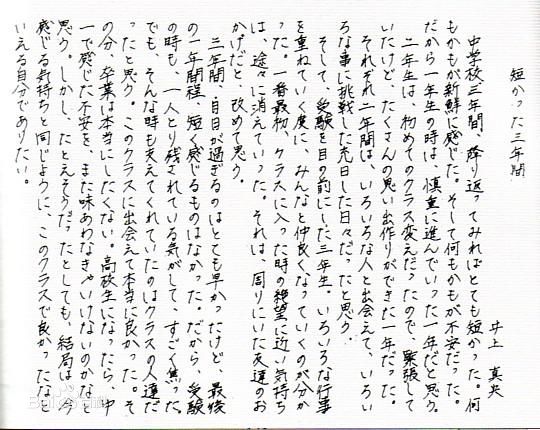 短かった三年間
井上 真央
中学校三年間、降り返ってみればとても短かった。何
もかもが新鮮に感じた。そして何もかもが不安だった。
だから一年生の時は、慎重に進んでいった一年だと思う。
二年生は、初めてのクラス変えだったので、緊張して
いたけど、たくさんの思い出作りができた一年だった。
それぞれ二年間は、いろいろな人と出会えて、いろい
ろな事に挑戦した充日した日々だったと思う。
そして、受験を目の前にした三年生。いろいろな行事
を重ねていく度に、みんなと仲良くなっていくのが分か
った。一番最初、クラスに入った時の絶望に近い気持ち
は、途々に消えていった。それは、周りにいた友達のお
かげだと、改めて思う。
三年間、日日が過ぎるのはとても早かったけど、最後
の一年間程、短く感じるものはなかった。だから、受験
の時も、一人とり残されている気がして、すごく焦った。
でも、そんな時も支えてくれていたのはクラスの人達だ
ったと思う。このクラスに出会えて本当に良かった。そ
の分、卒業は本当にしたくない。高校生になったら、中
一で感じた不安を、また味あわなきゃいけないのかなと
思う。しかし、たとえそうだったとしても、結局は、今
感じる気持ちと同じように、このクラスで良かったな
いえる自分でありたい。
Baidu百科